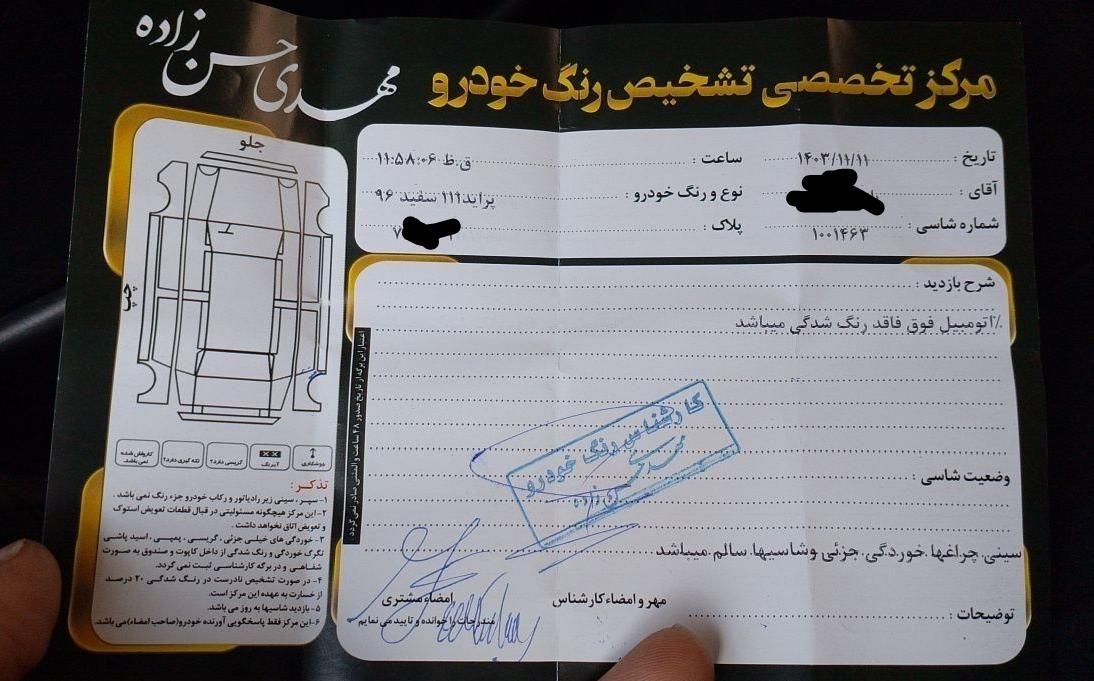 مهدی حسن زاده
مرکز تخصصی تشخیص رنگ خودرو
تاریخ : ۱۴۰۳/۱۱/۱۱
ساعت : ۱۱:۵۸:۰۶ ق.ظ
آقای :
نوع و رنگ خودرو : پراید۱۱۱ سفید ۹۶
شماره شاسی : ۱۰۰۱۴۶۳
پلاک :
شرح بازدید :
٪اتومبیل فوق فاقد رنگ شدگی میباشد
کارشناس رنگ خودرو
مهدی حسن زاده
وضعیت شاسی :
سینی چراغها خوردگی جزئی وشاسیها سالم میباشد
توضیحات :
مهر و امضاء کارشناس
امضاء مشتری
مندرجات را خوانده و تایید می نمایم
اعتبار این برگه از تاریخ صدور ۴۸ ساعت و المثنی صادر نمی گردد
جلو
چپ
جوشکاری
آبرنگ
گریسی دارد؟
لکه گیری دارد؟
کارواش شده نمی باشد.
تذکر :
۱- سپر ، سینی زیر رادیاتور و رکاب خودرو جزء رنگ نمی باشد .
۲- این مرکز هیچگونه مسئولیتی در قبال قطعات تعویض استوک
و تعویض اتاق نخواهد داشت .
۳- خوردگی های خیلی جزئی ، گریسی ، پمپی ، اسید پاشی
تگرگ خوردگی و رنگ شدگی از داخل کاپوت و صندوق به صورت
شفاهی و در برگه کارشناسی ثبت نمی گردد.
۴- در صورت تشخیص نادرست در رنگ شدگی ۲۰ درصد
از خسارت به عهده این مرکز است.
۵- بازدید شاسیها به روز می باشد.
۶- این مرکز فقط پاسخگویی آورنده خودرو(صاحب امضاء) می باشد.